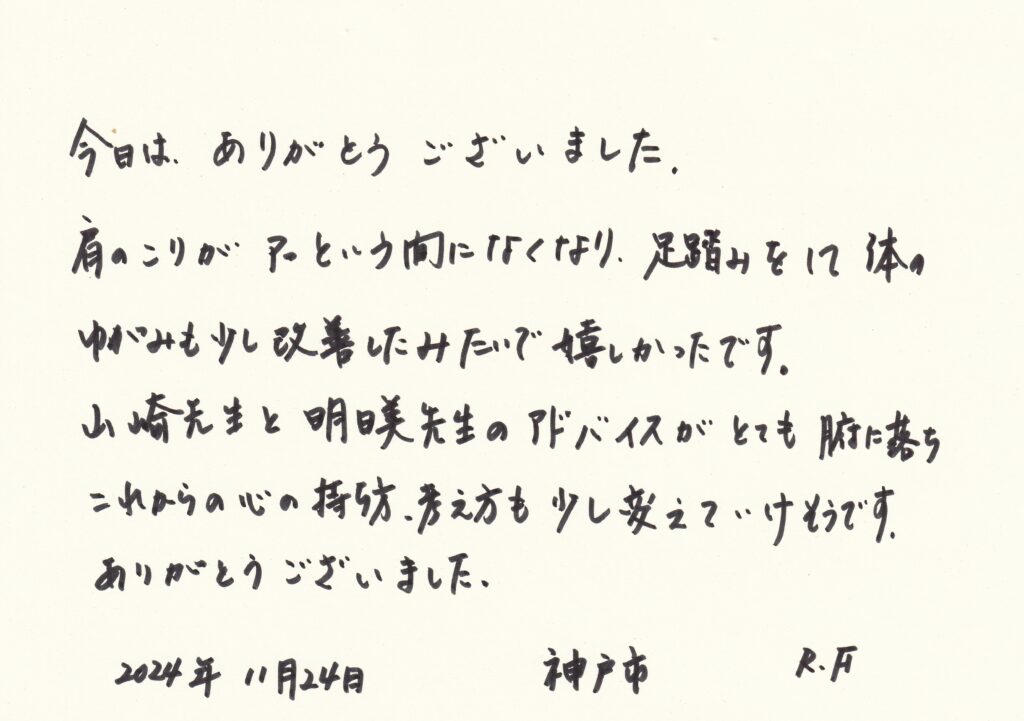 今日は、ありがとうございました。
肩のこりがアッという間になくなり、足踏みをして体の
ゆがみも少し改善したみたいで嬉しかったです。
山崎先生と明日美先生のアドバイスがとても腑に落ち
これからの心の持ち方、考え方も少し変えていけそうです。
ありがとうございました、
2024年 11月24日 神戸市 R.F